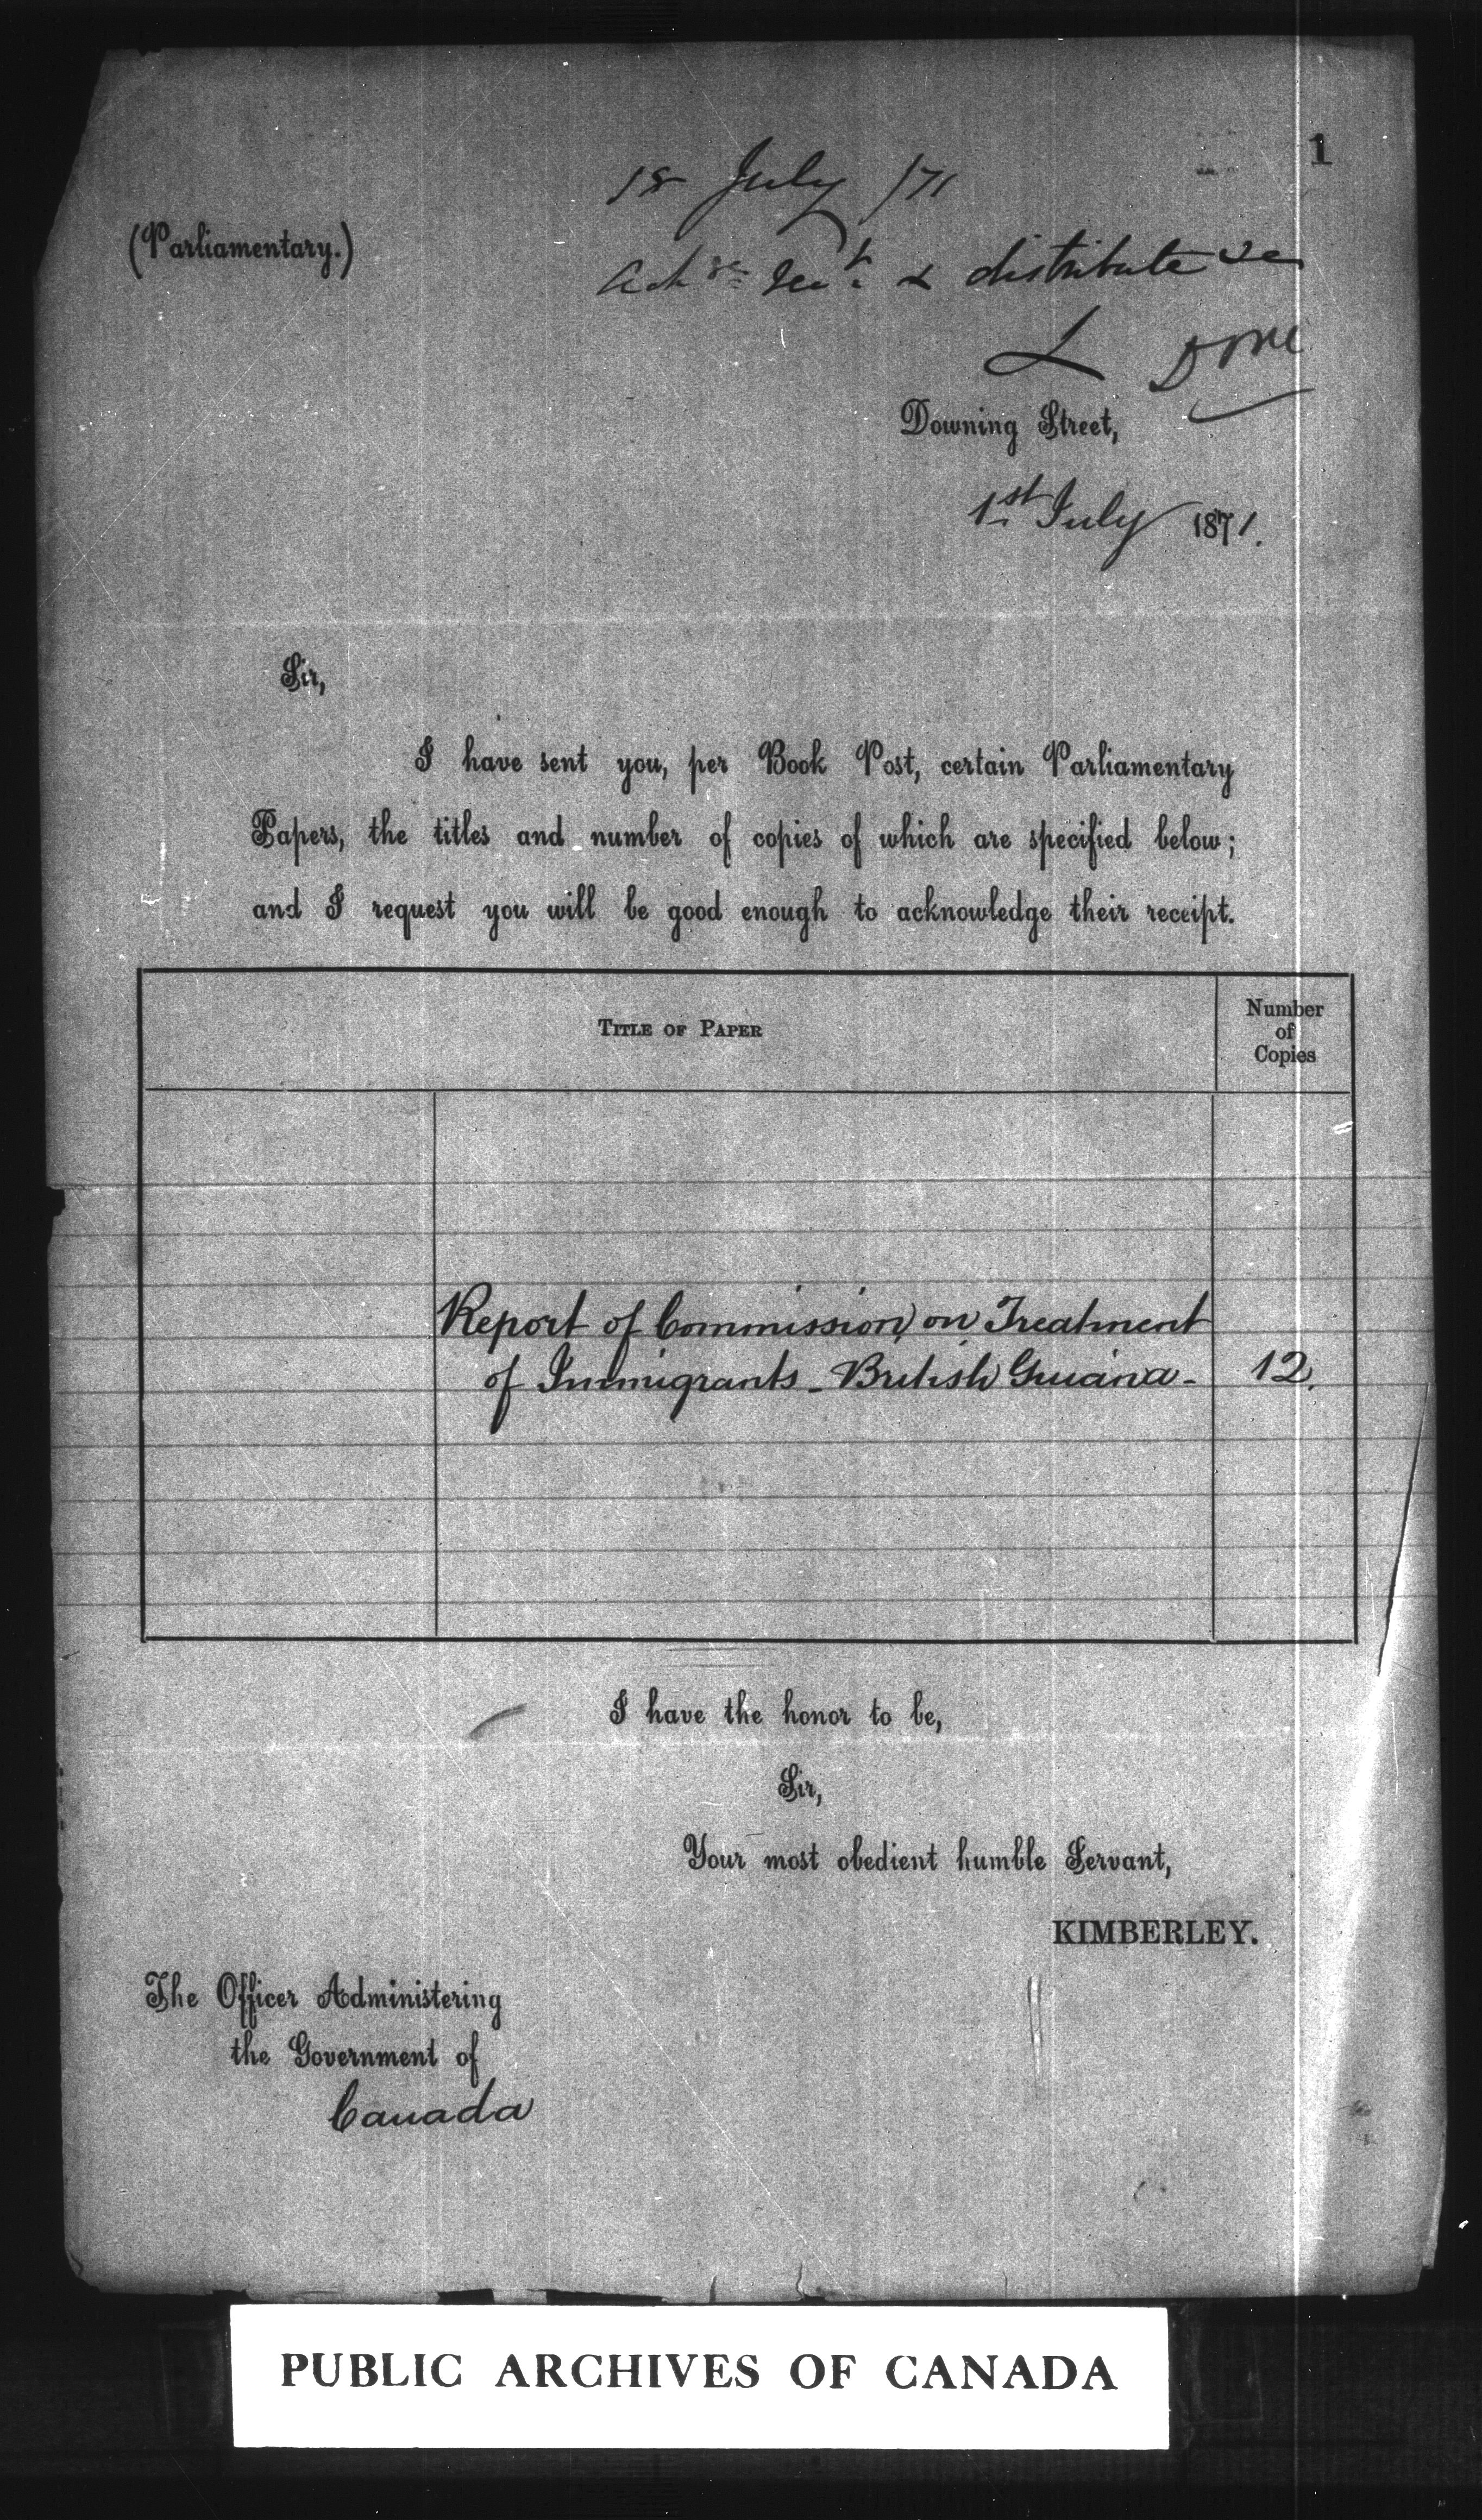 1
18 July /71
(Parliamentary.)
& distribute
L Done
Downing Street,
1st July 1871.
Sir,
I have sent you, per Book Post, certain Parliamentary
Papers, the titles and number of copies of which are specified below;
and I request you will be good enough to acknowledge their receipt.
TITLE OF PAPER
Number
of
Copies
Report of Commission on Treatment
of Immigrants - British Guiana - 12.
I have the honor to be,
Sir,
Your most obedient humble Servant,
KIMBERLEY.
The Officer Administering
the Government of
Canada
PUBLIC ARCHIVES OF CANADA